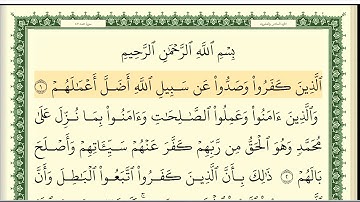 بِسْمِ اللَّهِ الرَّحْمَٰنِ الرَّحِيمِ
الَّذِينَ كَفَرُوا۟ وَصَدُّوا۟ عَن سَبِيلِ اللَّهِ أَضَلَّ أَعْمَٰلَهُمْ ١
وَالَّذِينَ ءَامَنُوا۟ وَعَمِلُوا۟ الصَّٰلِحَٰتِ وَءَامَنُوا۟ بِمَا نُزِّلَ عَلَىٰ
مُحَمَّدٍ وَهُوَ الْحَقُّ مِن رَّبِّهِمْ كَفَّرَ عَنْهُمْ سَيِّـَٔاتِهِمْ وَأَصْلَحَ
بَالَهُمْ ٢ ذَٰلِكَ بِأَنَّ الَّذِينَ كَفَرُوا۟ اتَّبَعُوا۟ الْبَٰطِلَ وَأَنَّ